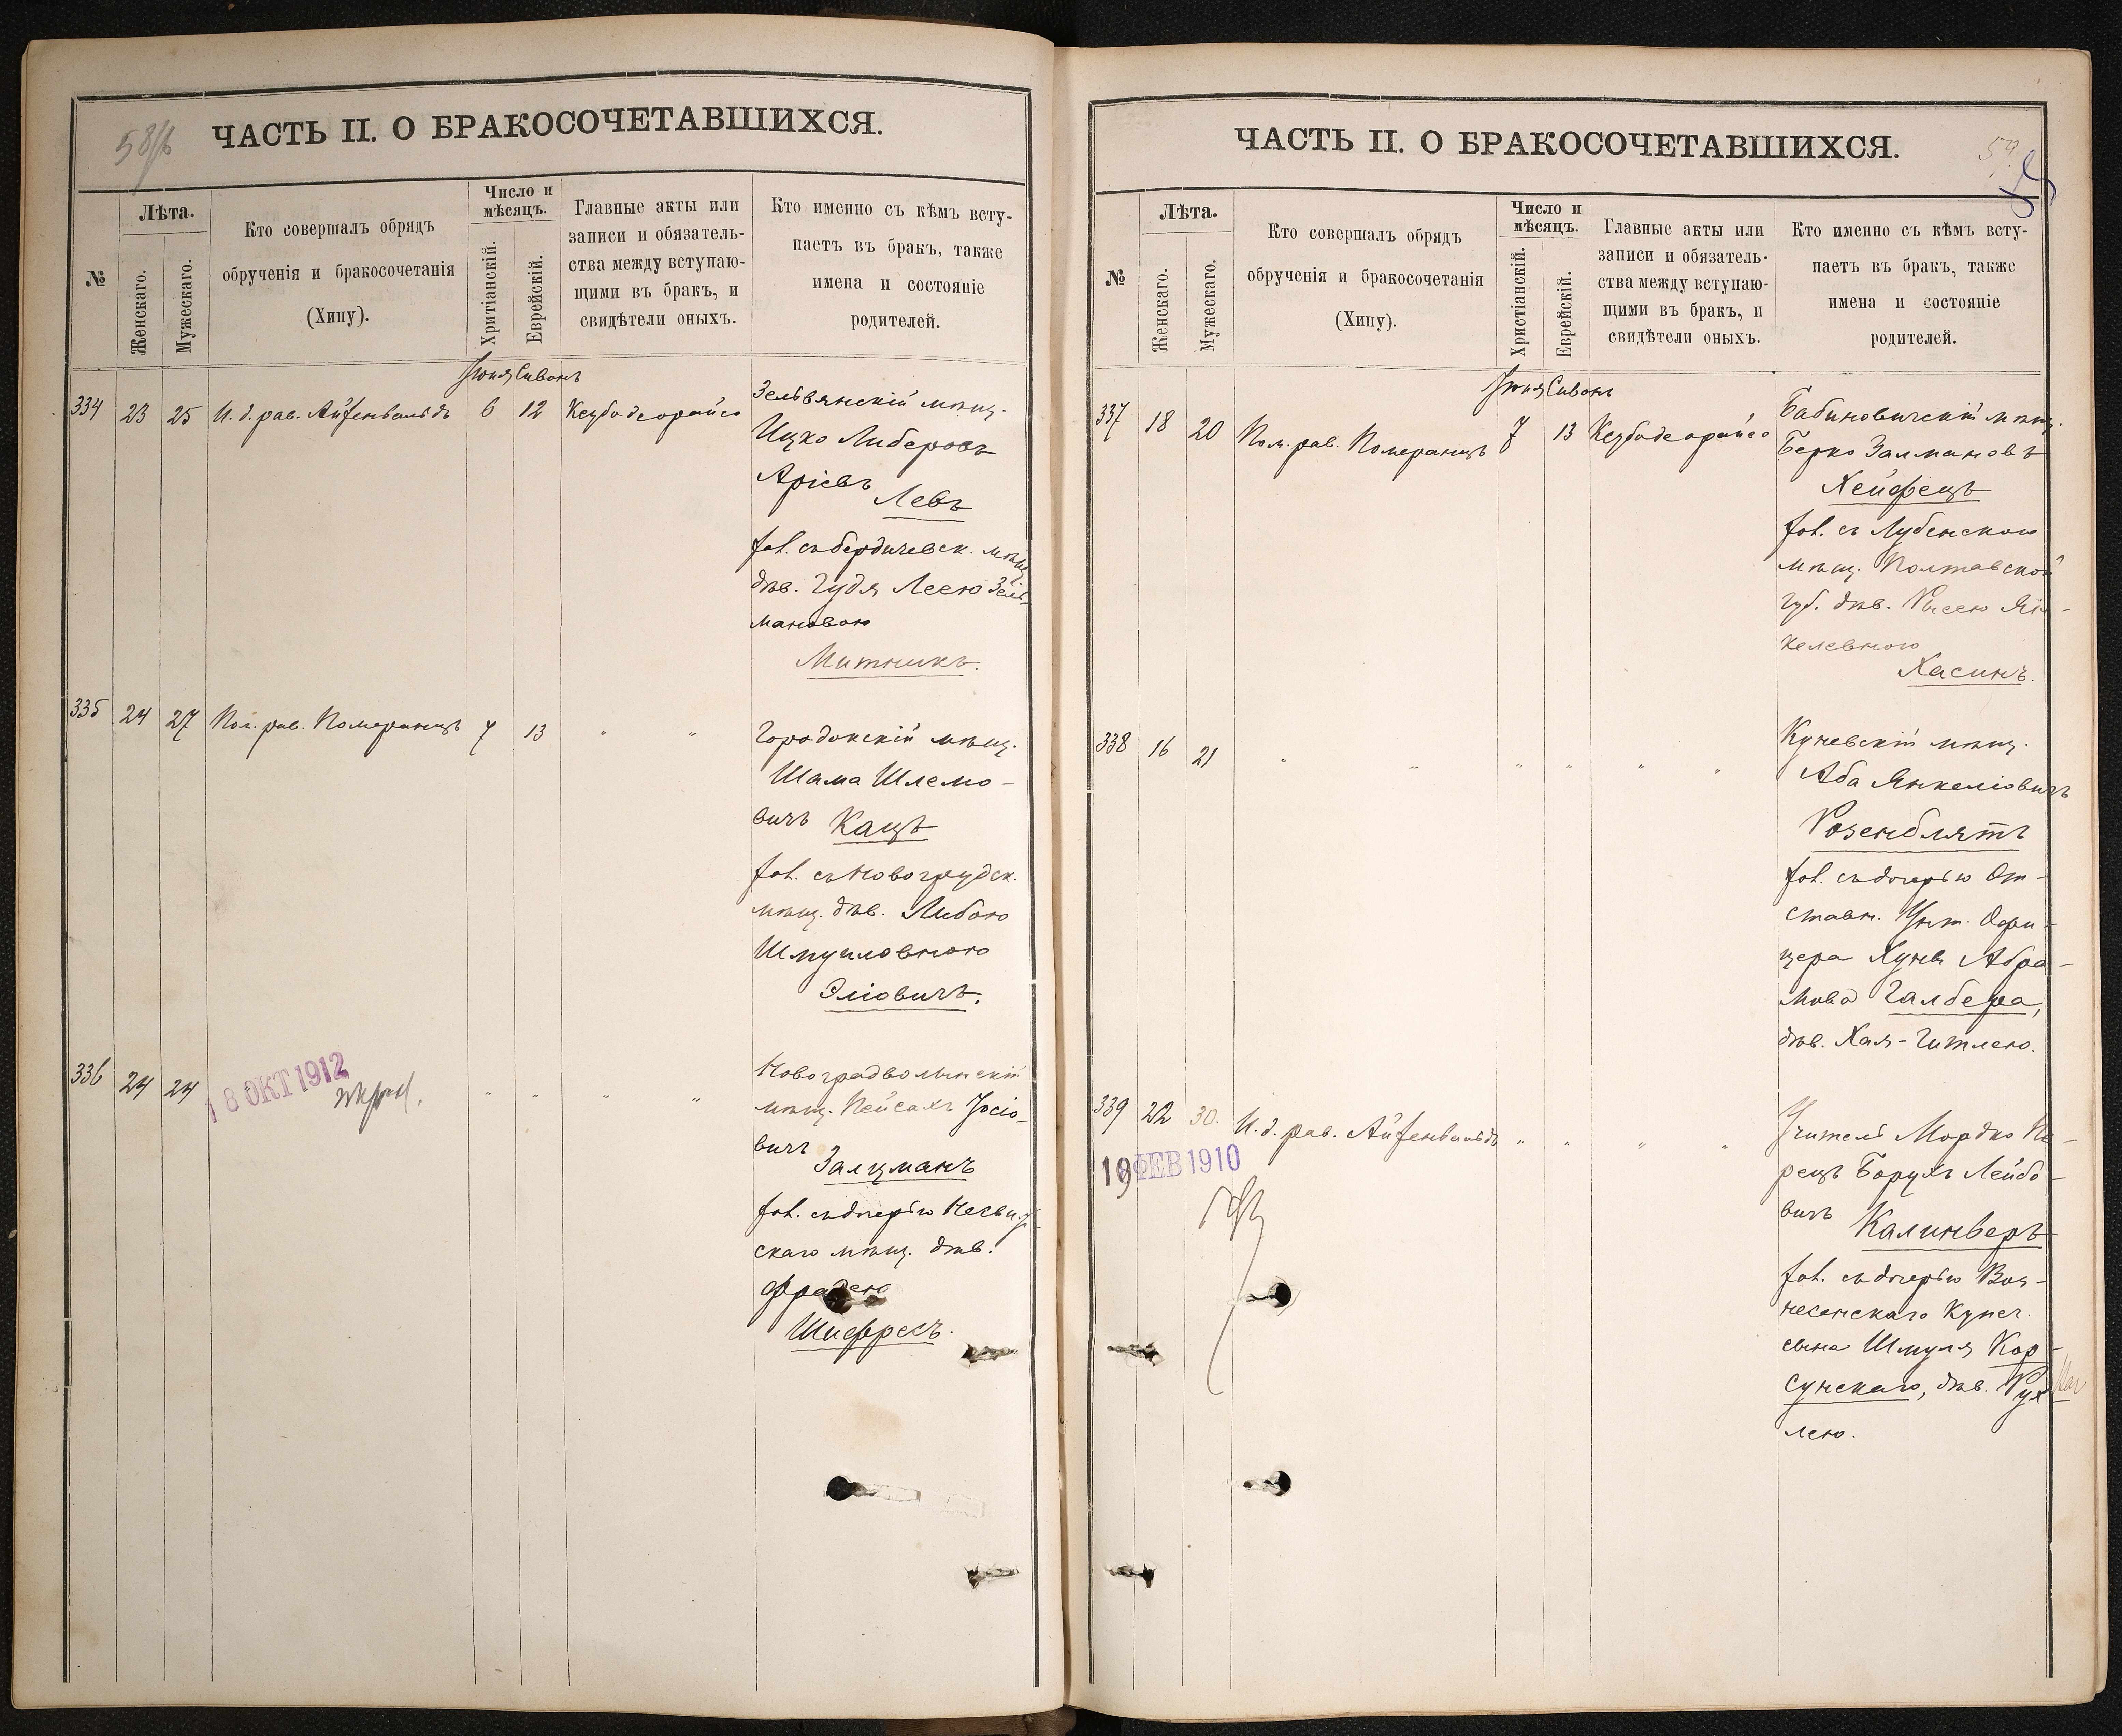 58/б
ЧАСТЬ II. О БРАКОСОЧЕТАВШИХСЯ.
№
Лѣта.
Женскаго.
Мужескаго.
Кто совершалъ обрядъ
обрученія и бракосочетанія
(Хипу).
Число и
мѣсяцъ.
Хритіанскій.
Еврейскій.
Главные акты или
записи и обязатель-
ства между вступаю-
щими въ бракъ, и
свидѣтели оныхъ.
Кто именно съ кѣмъ всту-
паетъ въ бракъ, также
имена и состояніе
родителей.
Іюня Сивонъ
334 23 25 И. д. рав. Айзенвальдъ 6 12 Кезубо деорайсо
Зельвянскій мѣщ.
Ицко Либеровъ
Аріевъ Левъ
хол. съ бердичевск. мѣщ.
дѣв. Гудя Леею Зель-
мановою
Митникъ.
335 24 27 Пом. рав. Померанцъ 7 13 " "
Городокскій мѣщ.
Шама Шлемо-
вичъ Кацъ
хол. съ Новогрудск.
мѣщ. дѣв. Либою
Шмуиловною
Эліовичъ.
336 24 24 " " " "
18 ОКТ 1912
Новоградволынскій
мѣщ. Пейсахъ Іосіо-
вичъ
Залцманъ
хол. съ дочерью
скаго мѣщ. дѣв.
Фрадею
Шифресъ.
59
ЧАСТЬ II. О БРАКОСОЧЕТАВШИХСЯ.
№
Лѣта.
Женскаго.
Мужескаго.
Кто совершалъ обрядъ
обрученія и бракосочетанія
(Хипу).
Число и
мѣсяцъ.
Христіанскій.
Еврейскій.
Главные акты или
записи и обязатель-
ства между вступаю-
щими въ бракъ, и
свидѣтели оныхъ.
Кто именно съ кѣмъ всту-
паетъ въ бракъ, также
имена и состояніе
родителей.
Іюня Сивонъ
337 18 20 Пом. рав. Померанцъ 7 13 Кезубо деорайсо
Бабиновичскій мѣщ.
Берко Залмановъ
Хейфецъ
хол. съ Лубенскою
мѣщ. Полтавской
губ. дѣв. Рысею Ян-
келевною
Хасинъ.
338 16 21 " " " " " "
Куневскій мѣщ.
Аба Янкеліовичъ
Розенблятъ
хол. съ дочерью От-
ставн. Унт. Офи-
цера Хуне Абра-
мова Галбера,
дѣв. Хая-Гитлею.
339 22 30. И. д. рав. Айзенвальдъ " " " "
19 ФЕВ 1910
Учитель Мордко Пе-
рецъ Борухъ Лейбо-
вичъ
Калинверъ
хол. съ дочерью Воз-
несенскаго Купеч.
сына Шмуля Кор-
сунскаго, дѣв. Рух-
лею.